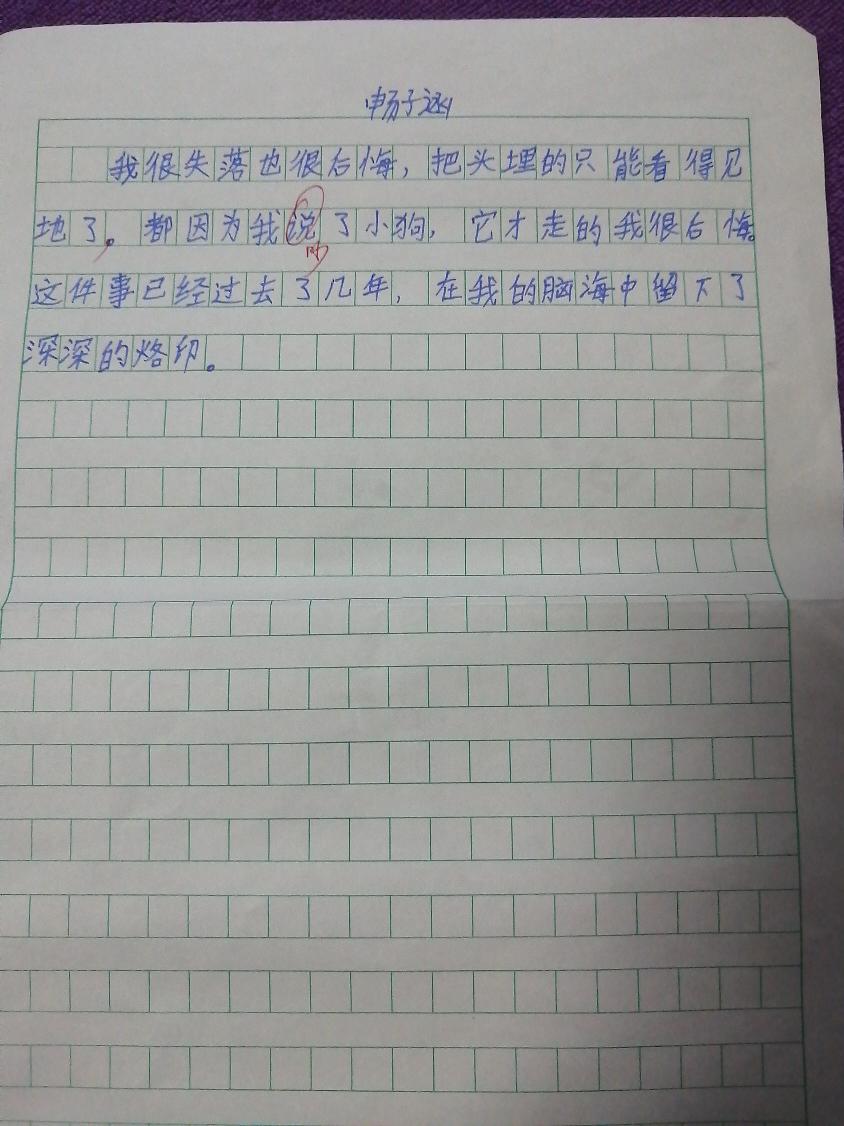 畅子涵
我很失落也很后悔，把头埋的只能看得见
地了。都因为我说了小狗，它才走的我很后悔。
这件事已经过去了几年，在我的脑海中留下了
深深的烙印。